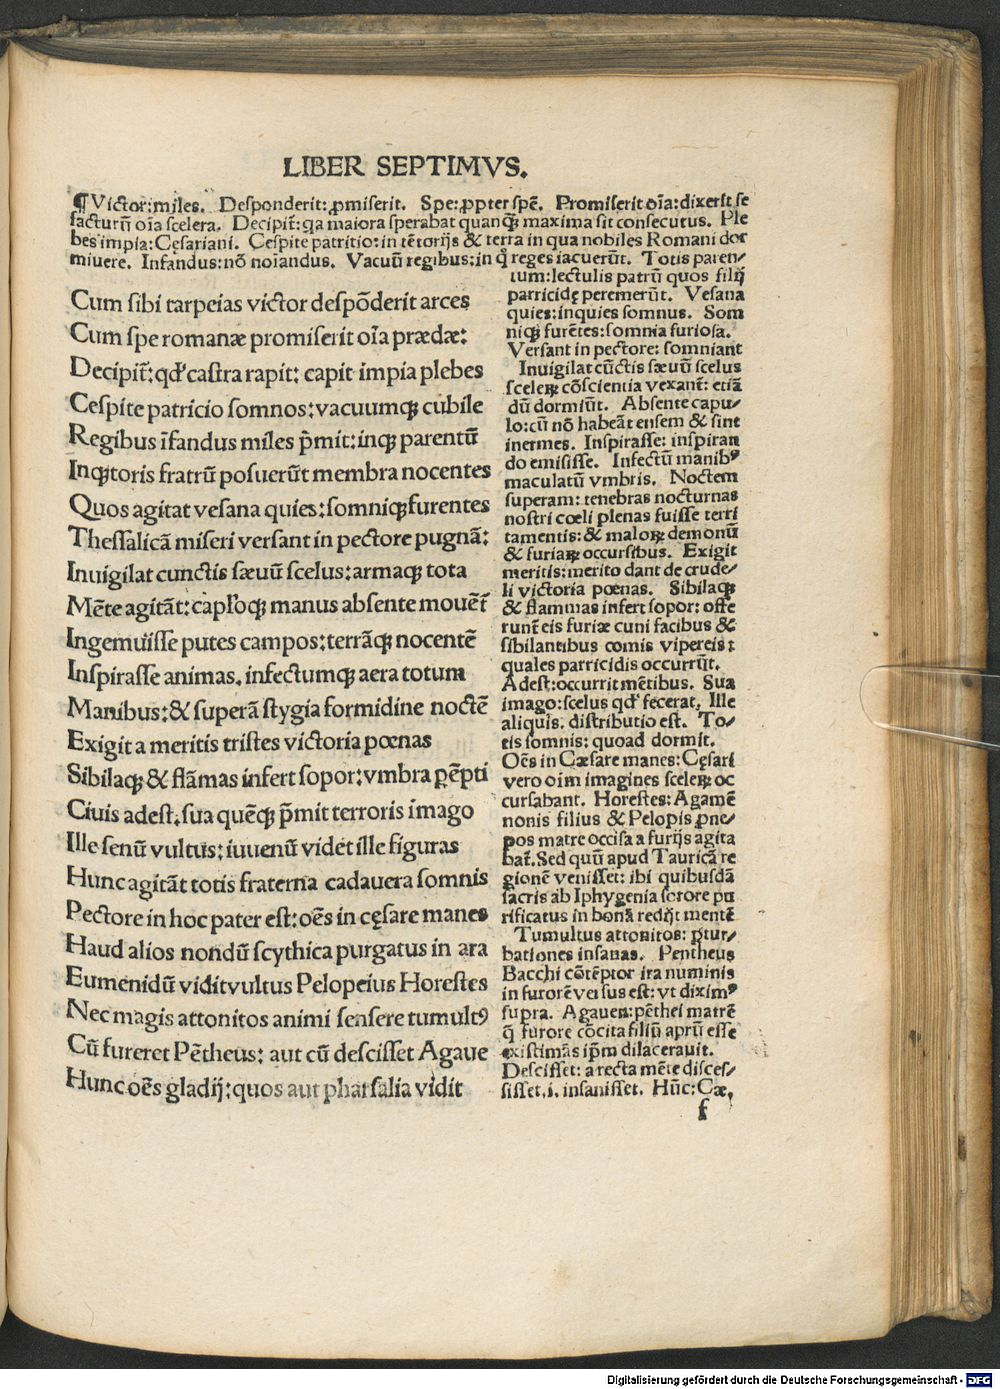 LIBER SEPTIMVS.
¶ Victor:miles. Desponderit: ꝓmiserit. Spe:ꝓpter spē. Promiserit oīa:dixerit se
facturū oīa scelera. Decipit̄:qa maiora sperabat quanqȝ maxima sit consecutus. Ple
bes impia:Cęsariani. Cespite patritio:in tētorijs & terra in qua nobiles Romani dor
miuere. Infandus:nō noīandus. Vacuū regibus:in q̄ reges iacuerūt. Totis paren⸗
tum:lectulis patrū quos filij
parricidę peremerūt. Vesana
quies:inquies somnus. Som
niqȝ furētes:somnia furiosa.
Versant in pectore: somniant
Inuigilat cūctis sæuū scelus
sceleꝝ cōscientia vexant̄: etiā
dū dormiūt. Absente capu⸗
lo:cū nō habeāt ensem & sint
inermes. Inspirasse: inspiran
do emisisse. Infectū manibꝰ
maculatū vmbris. Noctem
superam: tenebras nocturnas
nostri cœli plenas fuisse terri
tamentis: & maloꝝ demonū
& furiaꝝ occursibus. Exigit
meritis:merito dant de crude⸗
li victoria pœnas. Sibilaqȝ
& flammas infert sopor: offe
runt̄ eis furiæ cuni facibus &
sibilantibus comis vipereis:
quales parricidis occurrūt.
Adest:occurrit mētibus. Sua
imago:scelus qđ fecerat. Ille
aliquis. distributio est. To⸗
tis somnis: quoad dormit.
Oēs in Cæsare manes: Cęsari
vero oim imagines sceleꝝ oc
cursabant. Horestes: Agamē
nonis filius & Pelopis ꝓne⸗
pos matre occisa a furijs agita
bat̄. Sed quū apud Tauricā re
gionē venisset: ibi quibusdā
sacris ab Iphygenia sorore pu
rificatus in bonā redijt mentē
Tumultus attonitos: ꝑtur⸗
bationes insanas. Pentheus
Bacchi cōtēptor ira numinis
in furorē versus est: vt diximꝰ
supra. Agauen: pēthei matrē
q̄ furore cōcita filiū aprū esse
existimās ip̄m dilacerauit.
Descisset: a recta mēte disces⸗
sisset.i. insanisset. Hūc: Cæ,
Cum sibi tarpeias victor despōderit arces
Cum spe romanæ promiserit oīa prædæ:
Decipit̄:qđ castra rapit: capit impia plebes
Cespite patricio somnos:vacuumqȝ cubile
Regibus īfandus miles p̄mit:inqȝ parentū
Inqȝ toris fratrū posuerūt membra nocentes
Quos agitat vesana quies:somniqȝ furentes
Thessalicā miseri versant in pectore pugnā:
Inuigilat cunctis sæuū scelus:armaqȝ tota
Mēte agitāt: capl'oqȝ manus absente mouēt̄
Ingemuisse putes campos:terrāqȝ nocentē
Inspirasse animas. infectumqȝ aera totum
Manibus:& superā stygia formidine noctē
Exigit a meritis tristes victoria pœnas
Sibilaqȝ & flāmas infert sopor:vmbra ꝑēpti
Ciuis adest.sua quēqȝ p̄mit terroris imago
Ille senū vultus: iuuenū videt ille figuras
Hunc agitāt totis fraterna cadauera somnis
Pectore in hoc pater est:oēs in cęsare manes
Haud alios nondū scythica purgatus in ara
Eumenidū vidit vultus Pelopeius Horestes
Nec magis attonitos animi sensere tumultꝰ
Cū fureret Pētheus: aut cū descisset Agaue
Hunc oēs gladij:quos aut pharsalia vidit
f
Digitalisierung gefördert durch die Deutsche Forschungsgemeinschaft - DFG